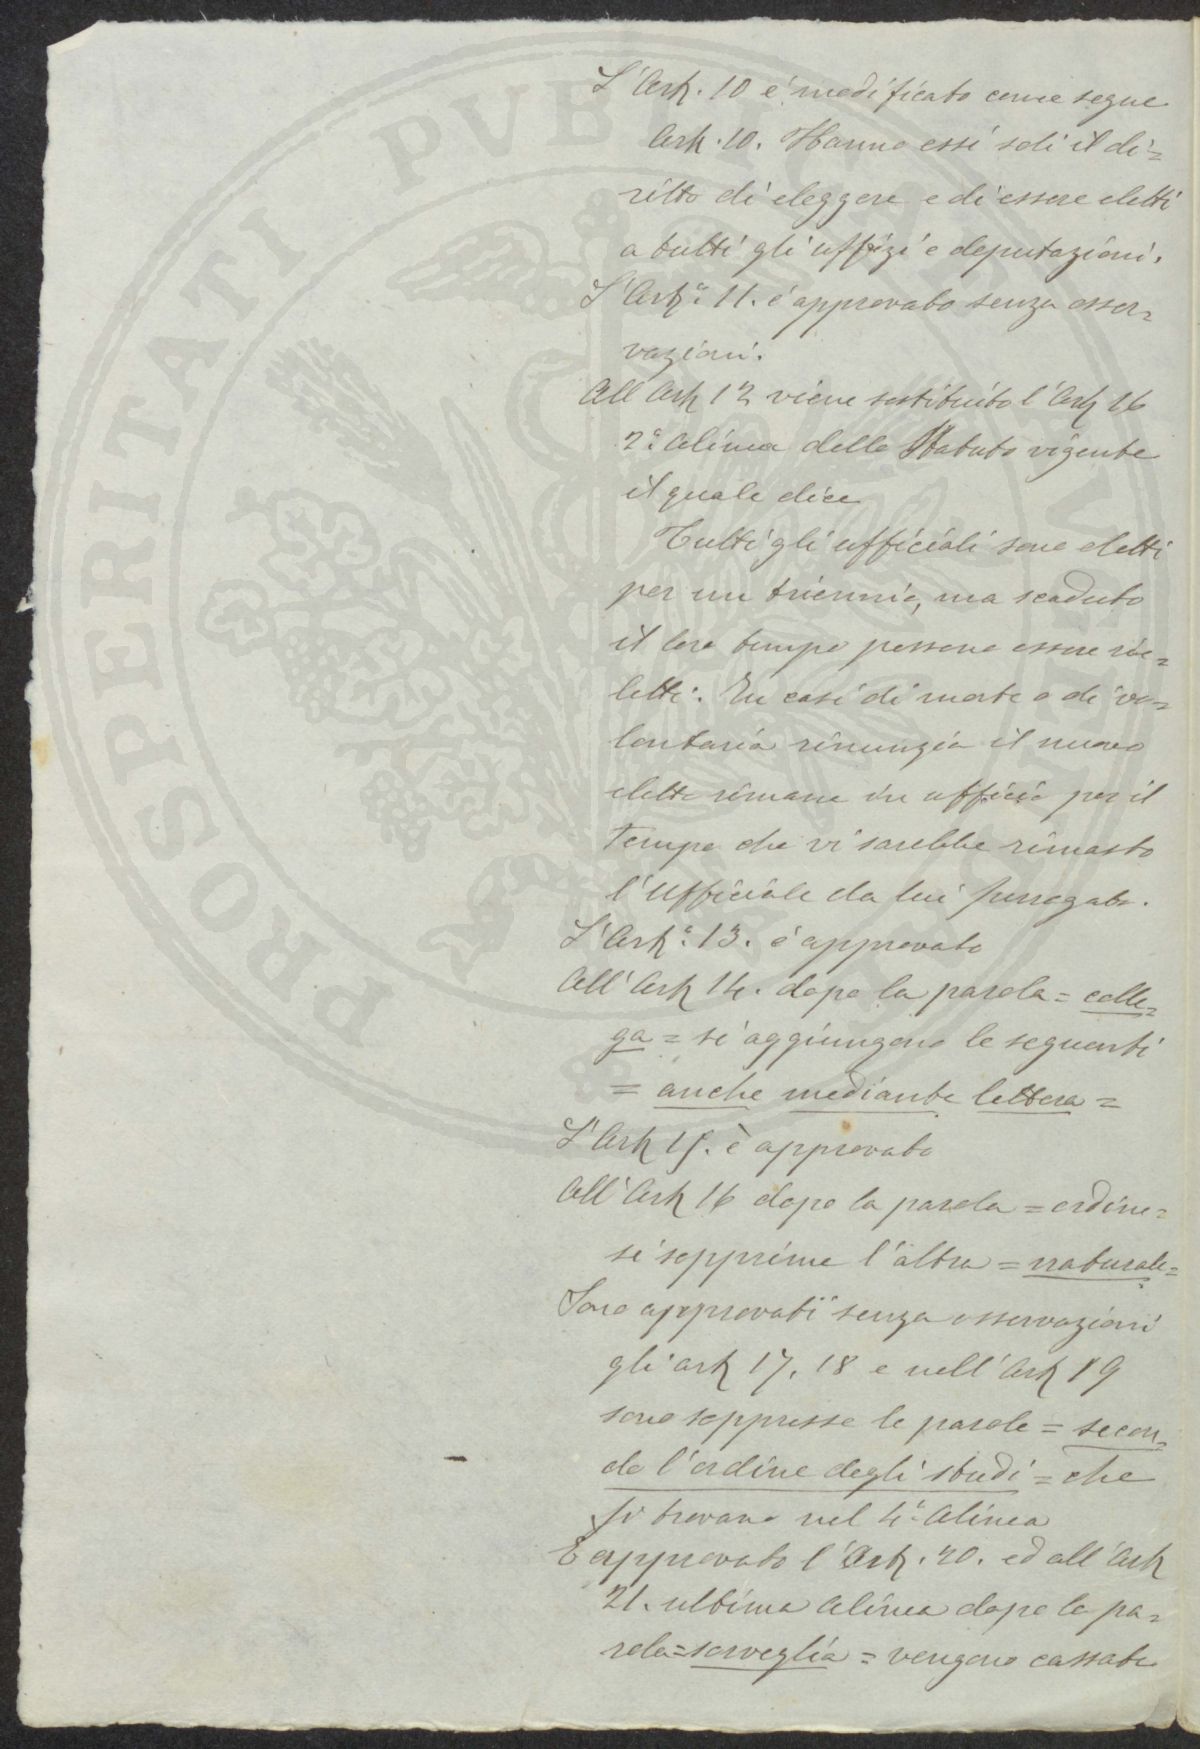 L'Art. 10 è modificato come segue
Art. 10. Hanno essi soli il di=
ritto di eleggere e di essere eletti
a tutti gli uffizi e deputazioni.
L'Artº. 11. è approvato senza osser=
vazioni.
All Art 12 viene sostituito l'Art 16
2º alinea dello Statuto vigente
il quale dice
Tutti gli ufficiali sono eletti
per un triennio, ma scaduto
il loro tempo possono essere rie=
letti. In casi di morte o di vo=
lontaria rinunzia il nuovo
eletto rimane in ufficio per il
tempo che vi sarebbe rimasto
l'ufficiale da lui surrogato.
L'Artº. 13. è approvato
All'Art 14. dopo la parola = colle=
ga = si aggiungono le seguenti
= anche mediante lettera =
L'Art 15. è approvato
All'Art 16 dopo la parola = ordine=
si sopprime l'altra = naturale=
Sono approvati senza osservazioni
gli art 17, 18 e nell'Art 19
sono soppresse le parole = secon=
do l'ordine degli studi = che
si trovano nel 4º alinea
È approvato l'Art. 20. ed all'Art
21. ultima alinea dopo la pa=
rola=sorveglia = vengono cassate
PROSPERITATI PVBLICAE